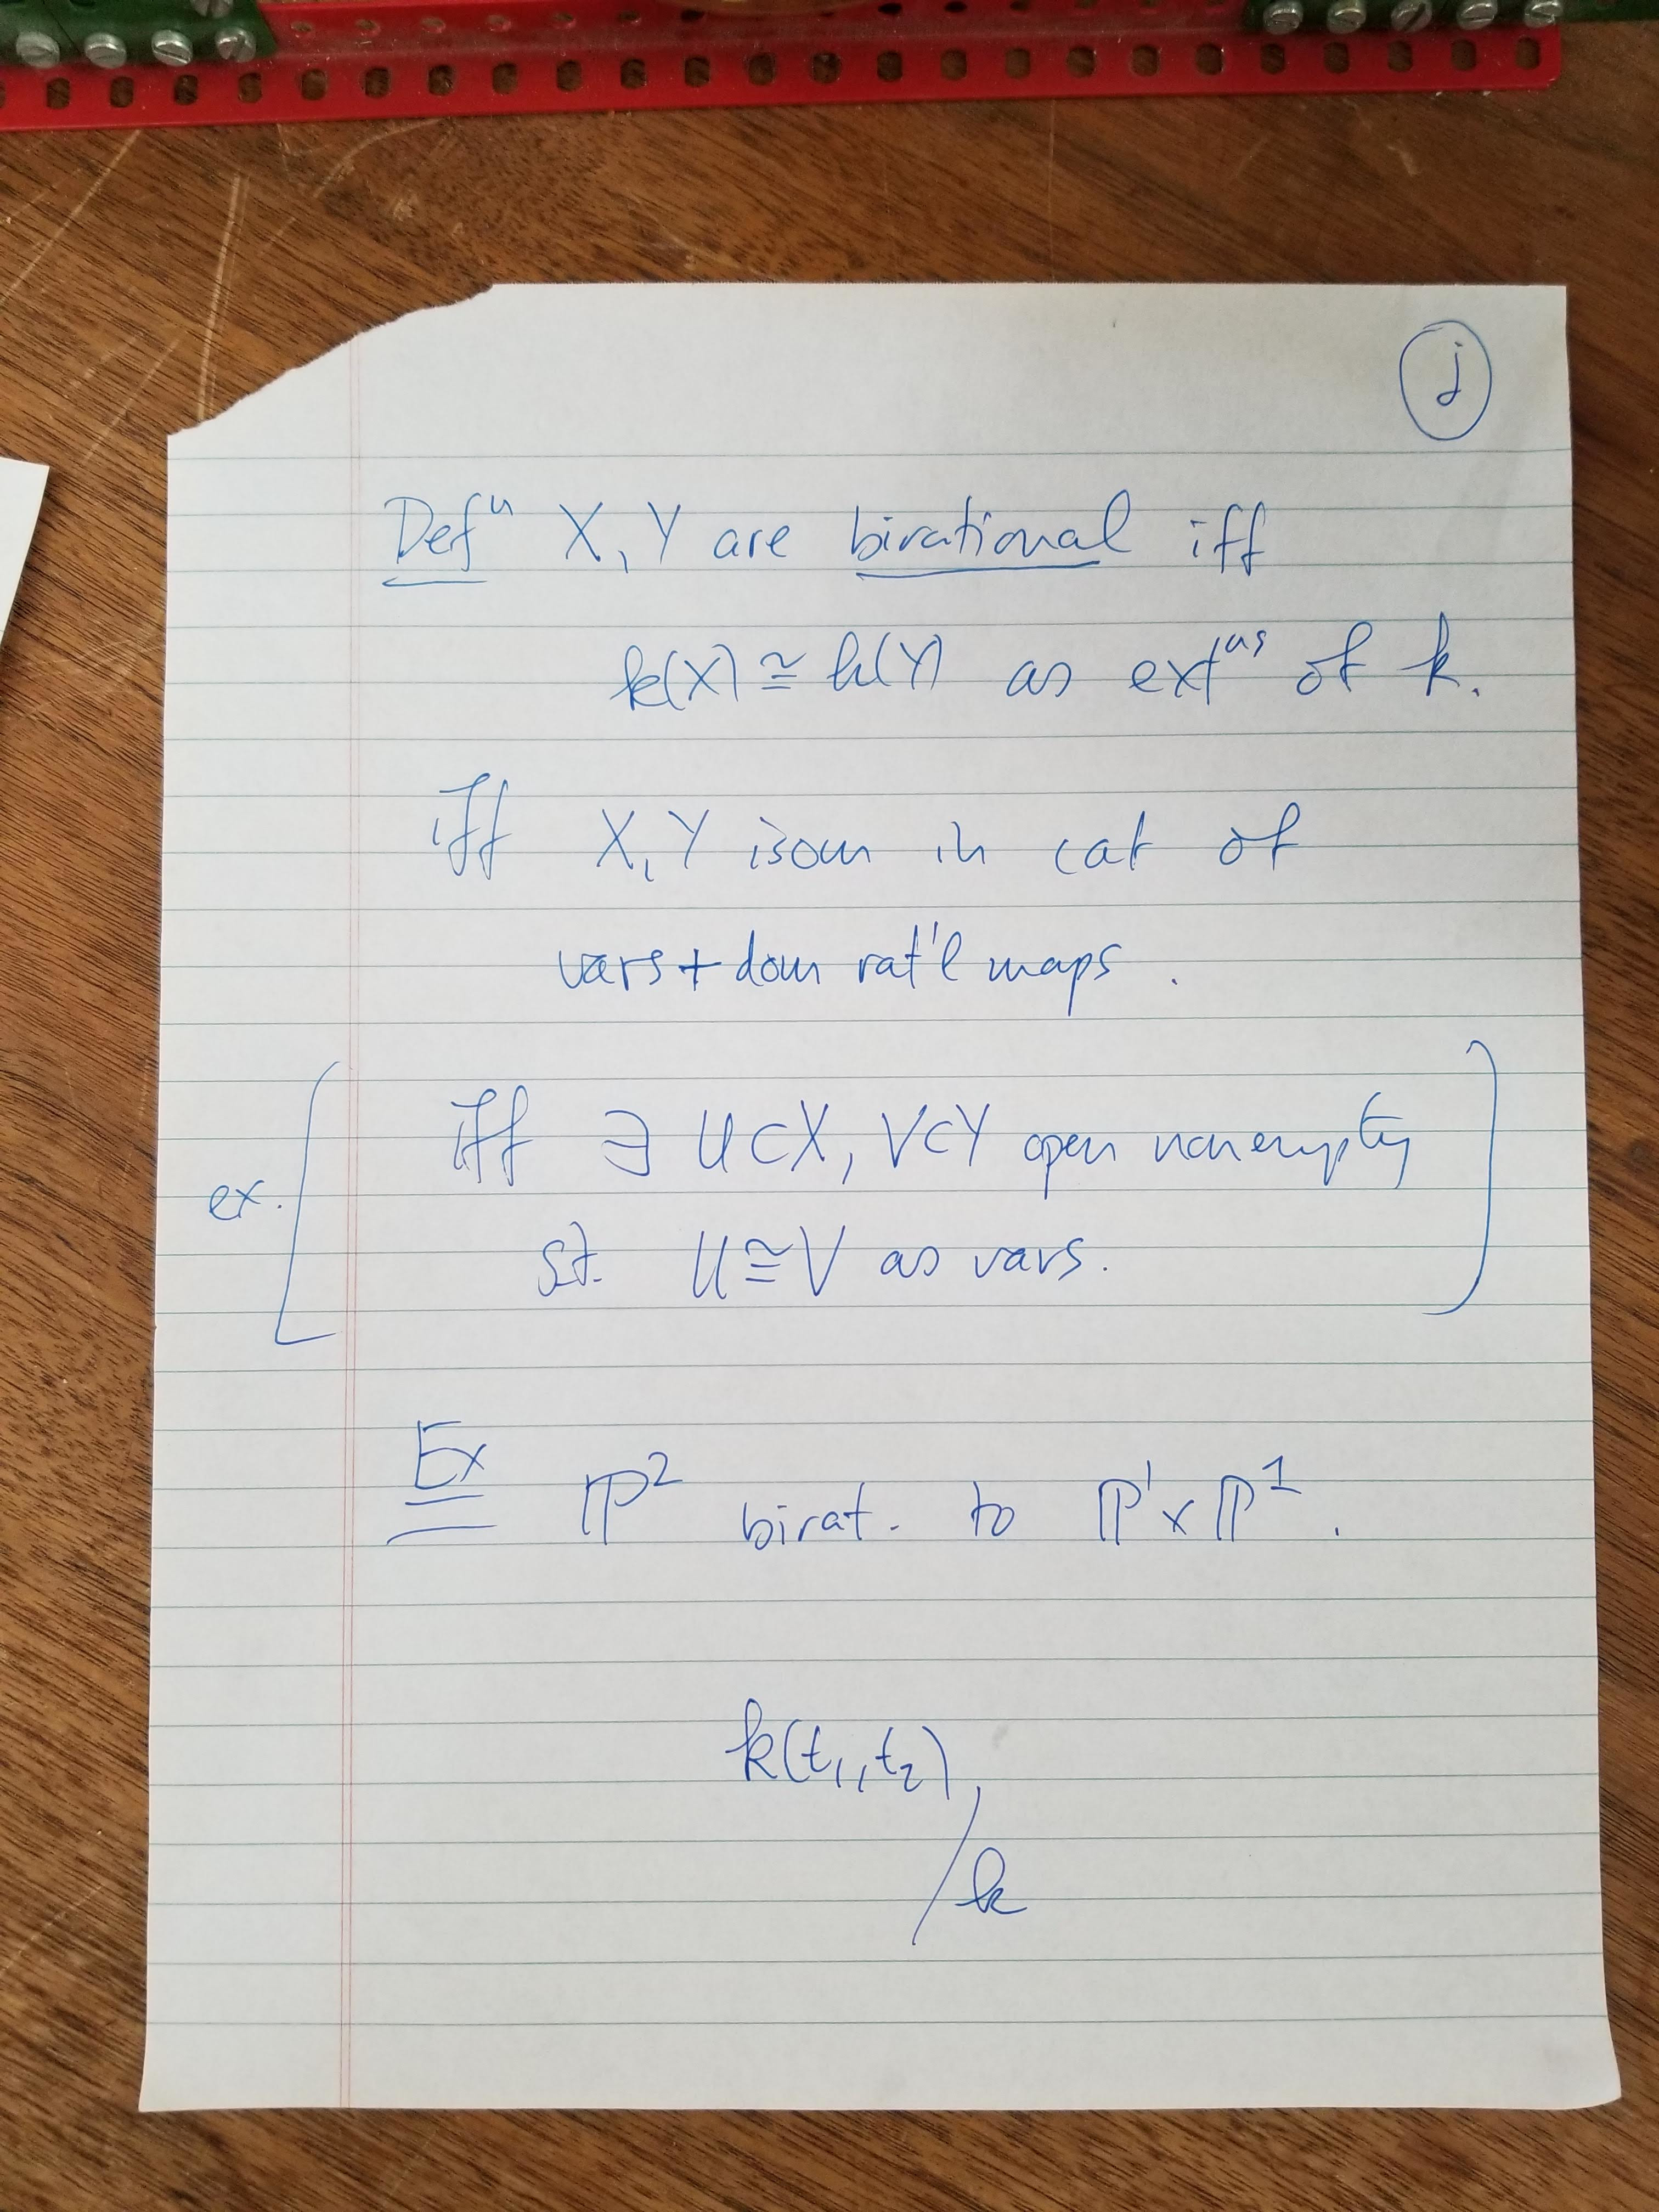 j
Defⁿ X, Y are birational iff
k(X) ≅ k(Y) as extⁿˢ of k.
iff X, Y isom in cat of
vars + dom rat'l maps.
iff ∃ U⊂X, V⊂Y open nonempty
ex.
st. U≅V as vars.
Ex ℙ² birat. to ℙ¹×ℙ¹.
k(t₁,t₂)
/k